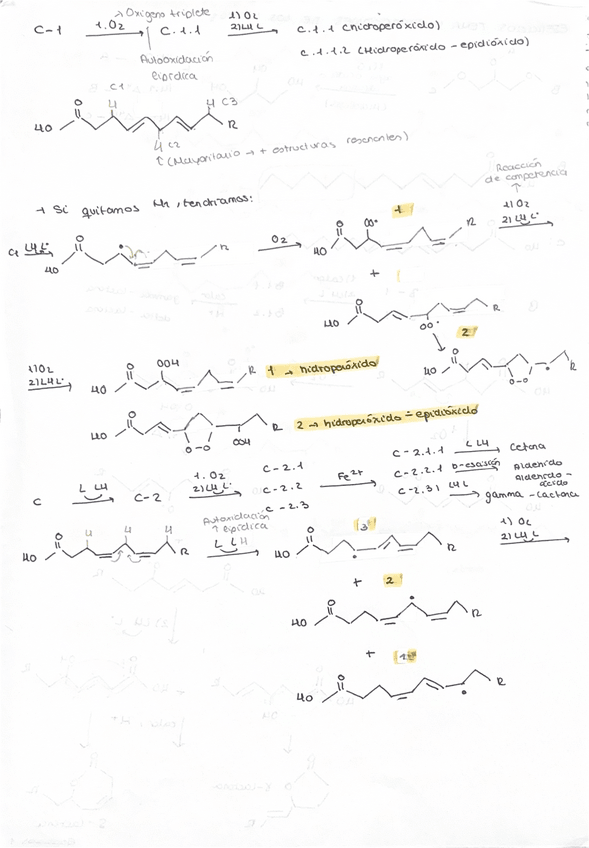 → Oxígeno triplete
C-1 1. O₂ C.1.1 1) O₂ 2) LH L· C.1.1.1 (hidroperóxido)
C.1.1.2 (Hidroperóxido - epidióxido)
Autooxidación lipídica
C1
O H H C3
HO R
H C2
↑ (Mayoritario → + estructuras resonantes)
Reacción de competencia
→ Si quitamos H₁, tendríamos:
LH L· O HO R O₂ O OO· HO R 1 1) O₂ 2) LH L·
+
O HO OO· R 2
1) O₂ 2) LH L· O OOH HO R 1 → hidroperóxido
O HO O-O R
O HO O-O OOH R 2 → hidroperóxido - epidióxido
C L LH C-2 1. O₂ 2) LH L· C-2.1 Fe²⁺ C-2.1.1 L LH Cetona
C-2.2 C-2.2.1 Aldehído
C-2.3 C-2.3.1 LH L Aldehído-ácido
gamma-lactona
Autoxidación lipídica
O H H H HO R L LH O HO R 3 1) O₂ 2) LH L·
+ 2
O HO R
+ 1
O HO R